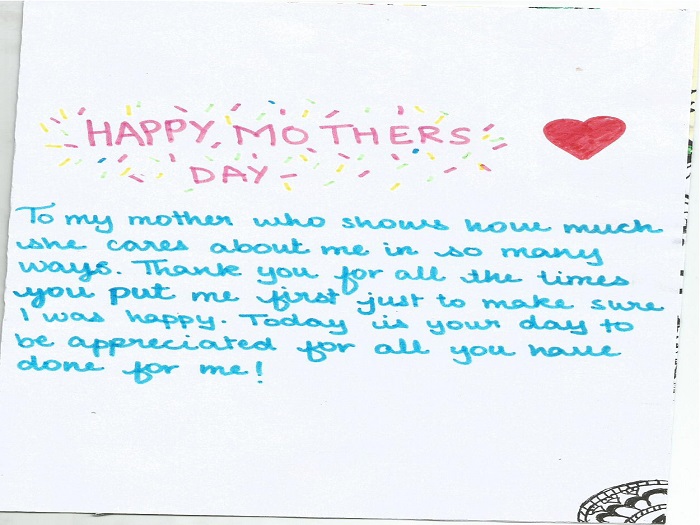 HAPPY MOTHERS
DAY
To my mother who shows how much
she cares about me in so many
ways. Thank you for all the times
you put me first just to make sure
I was happy. Today is your day to
be appreciated for all you have
done for me!